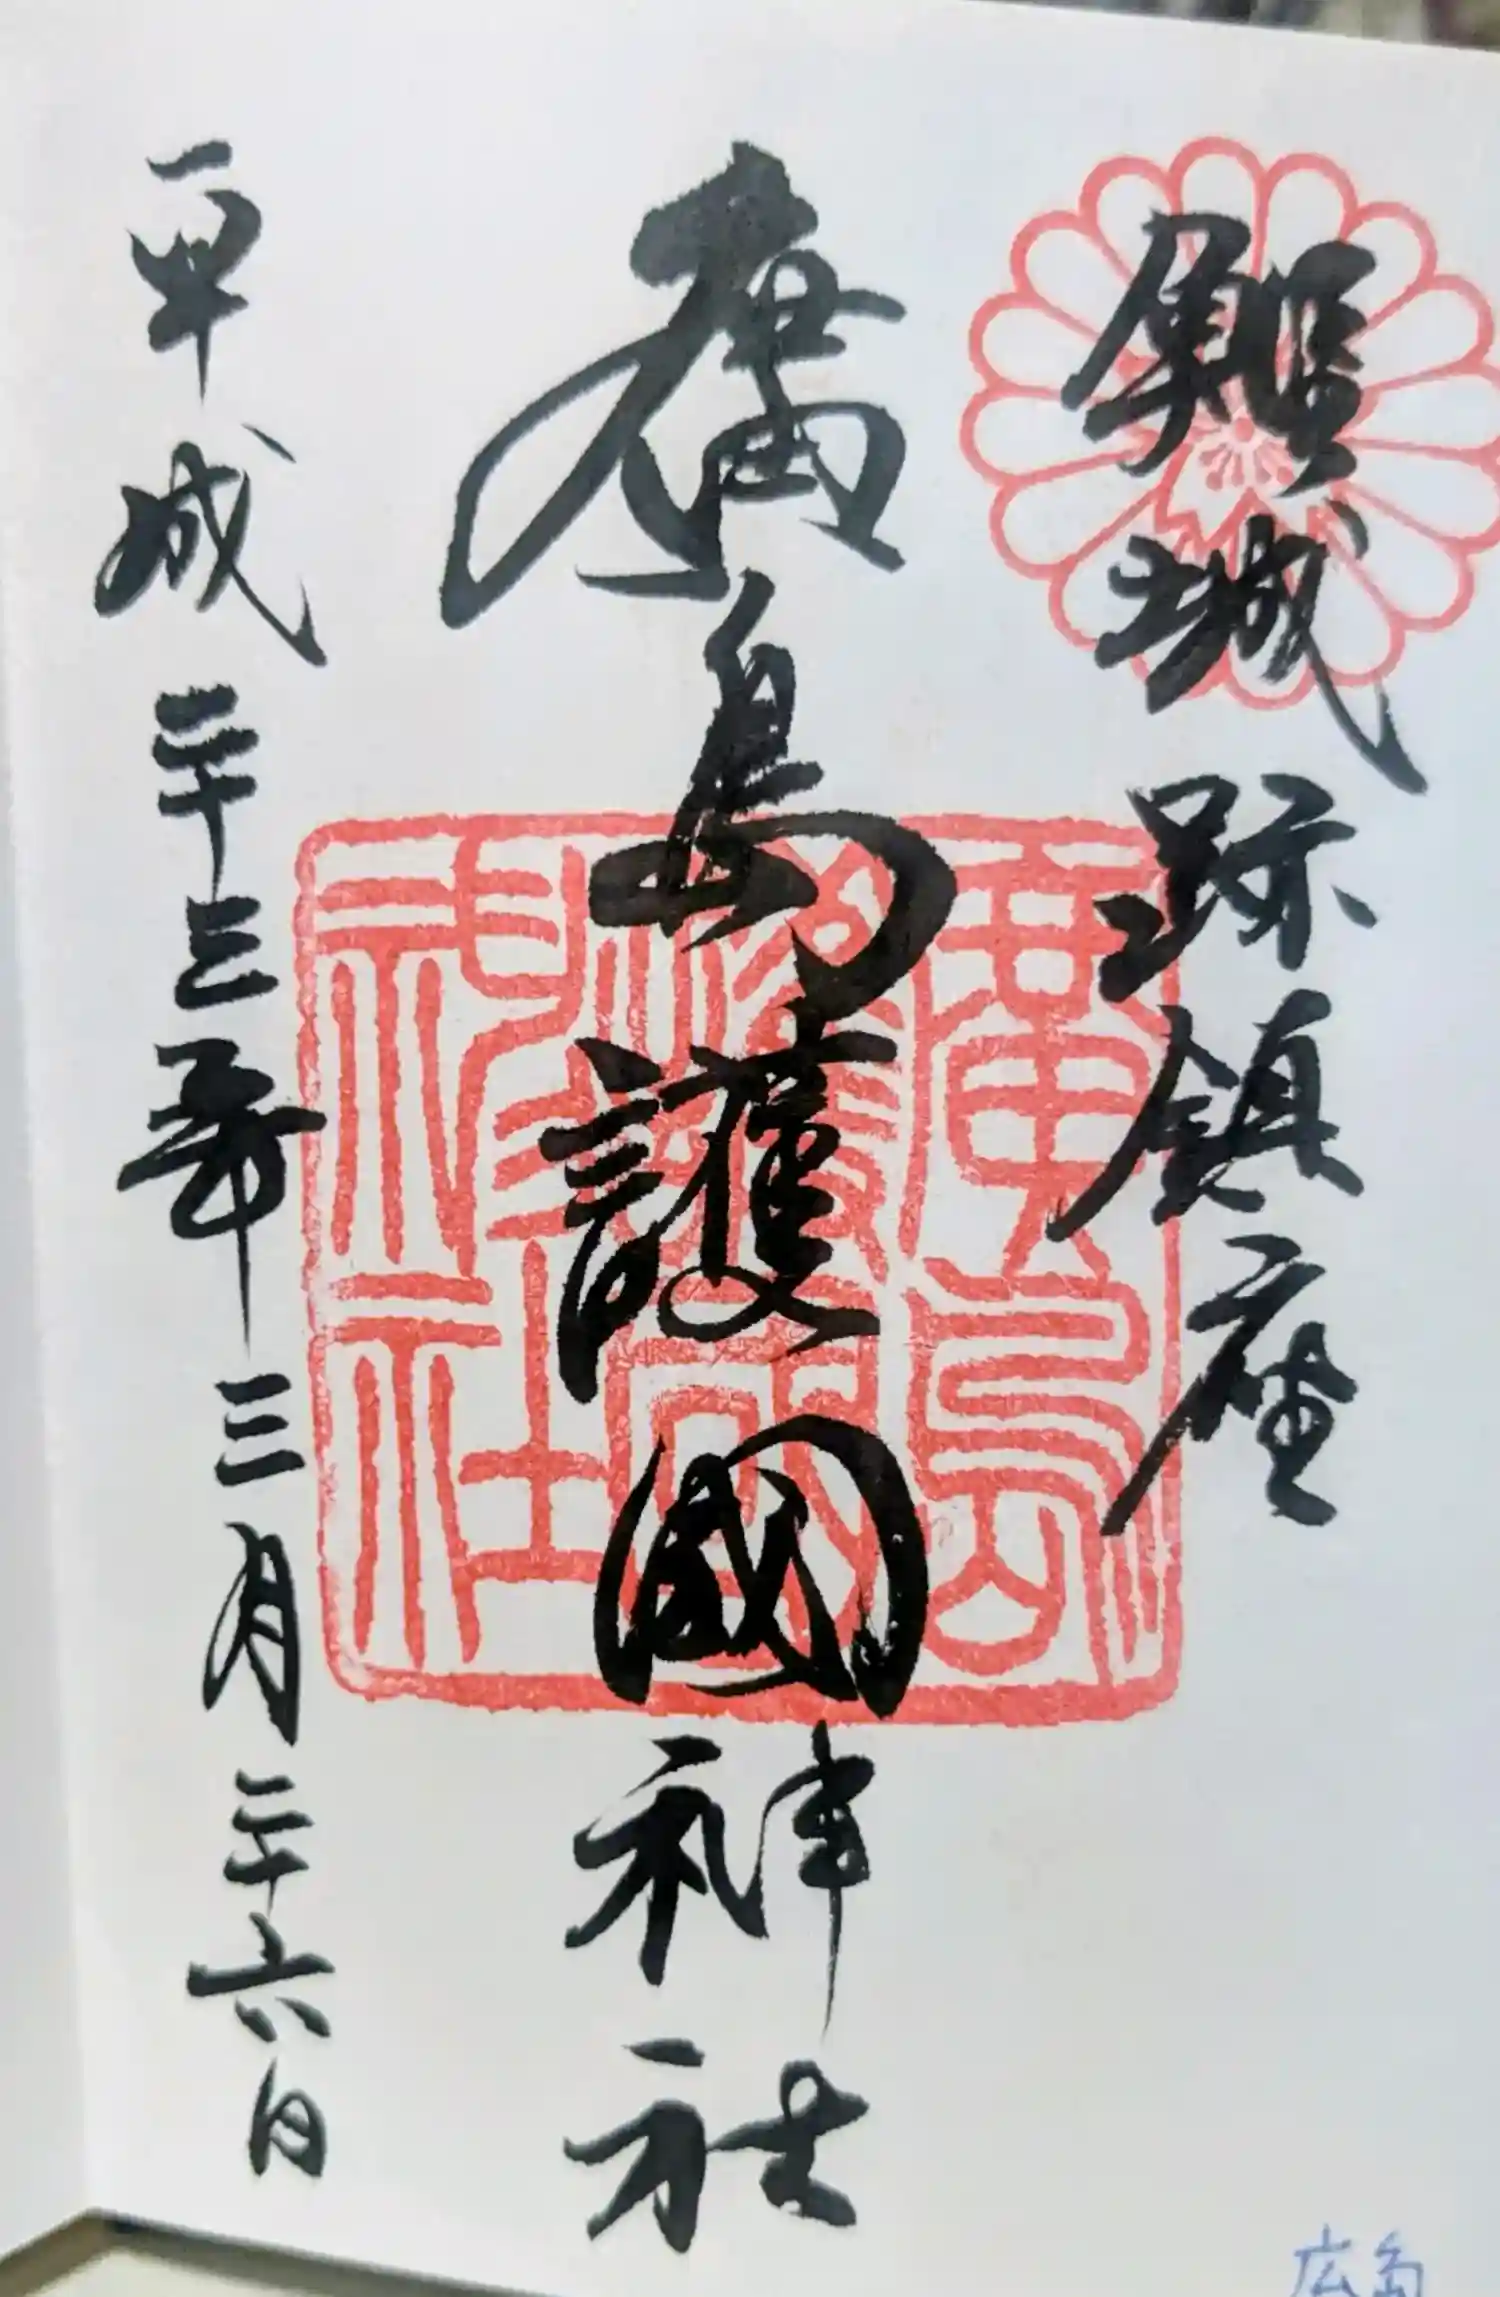 鯉城跡鎮座
廣島護國神社
平成二十三年三月二十六日
廣島
護國
神社
広島